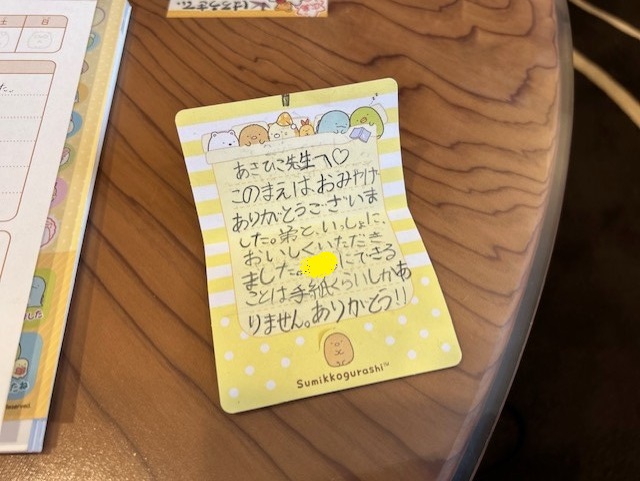 土 日
した。
はろうまで。
あさひこ先生へ♡
このまえはおみやげ
ありがとうございま
した。弟と、いっしょに、
おいしくいただき
ました。
にできる
ことは手紙くらいしかあ
りません。ありがとう!!
Sumikkogurashi™
した
たね
Reserved.